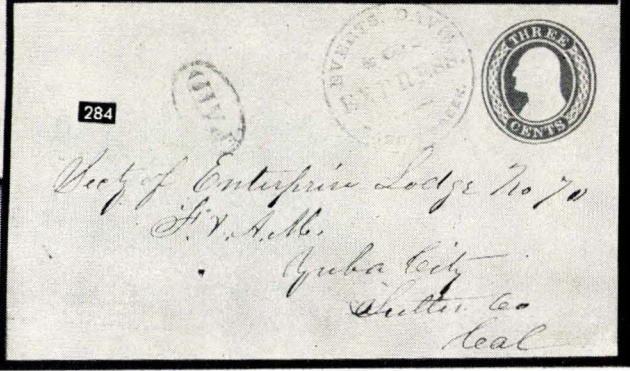 EVERTS, DAVIS
& CO.
EXPRESS
PAID
THREE
CENTS
284
Secty of Enterprise Lodge No 70
F. & A. M.
Yuba City
Sutter Co
Cal